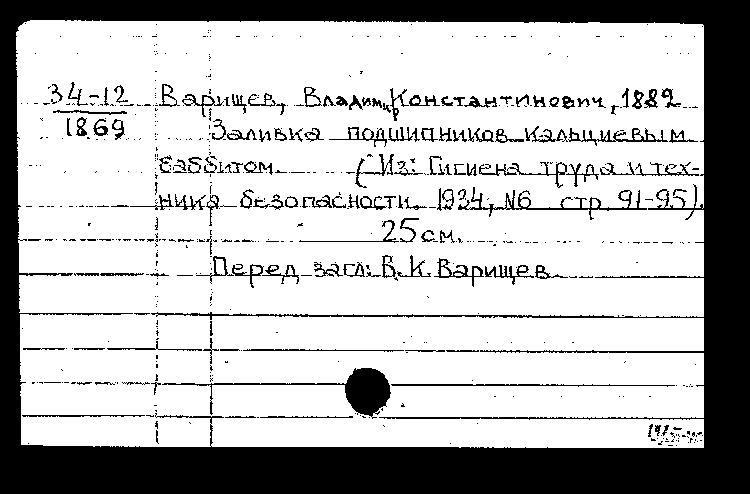 34-12 Варищев, Владимир Константинович, 1882
1869 Заливка подшипников кальциевым
баббитом. (Из: Гигиена труда и тех-
ника безопасности. 1934, №6 стр. 91-95).
25 см.
Перед загл: В. К. Варищев.